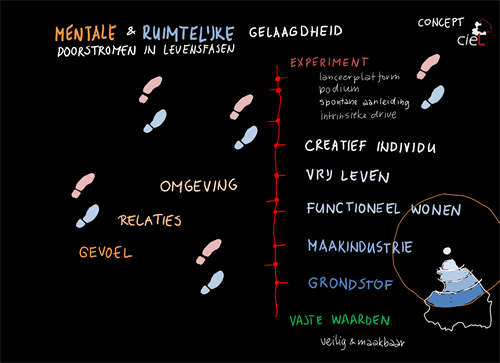 MENTALE & RUIMTELIJKE GELAAGDHEID
DOORSTROMEN IN LEVENSFASEN
CONCEPT
cieL
EXPERIMENT
lanceerplatform
podium
spontane aanleiding
intrinsieke drive
CREATIEF INDIVIDU
VRIJ LEVEN
OMGEVING
FUNCTIONEEL WONEN
RELATIES
MAAKINDUSTRIE
GEVOEL
GRONDSTOF
VASTE WAARDEN
veilig & maakbaar